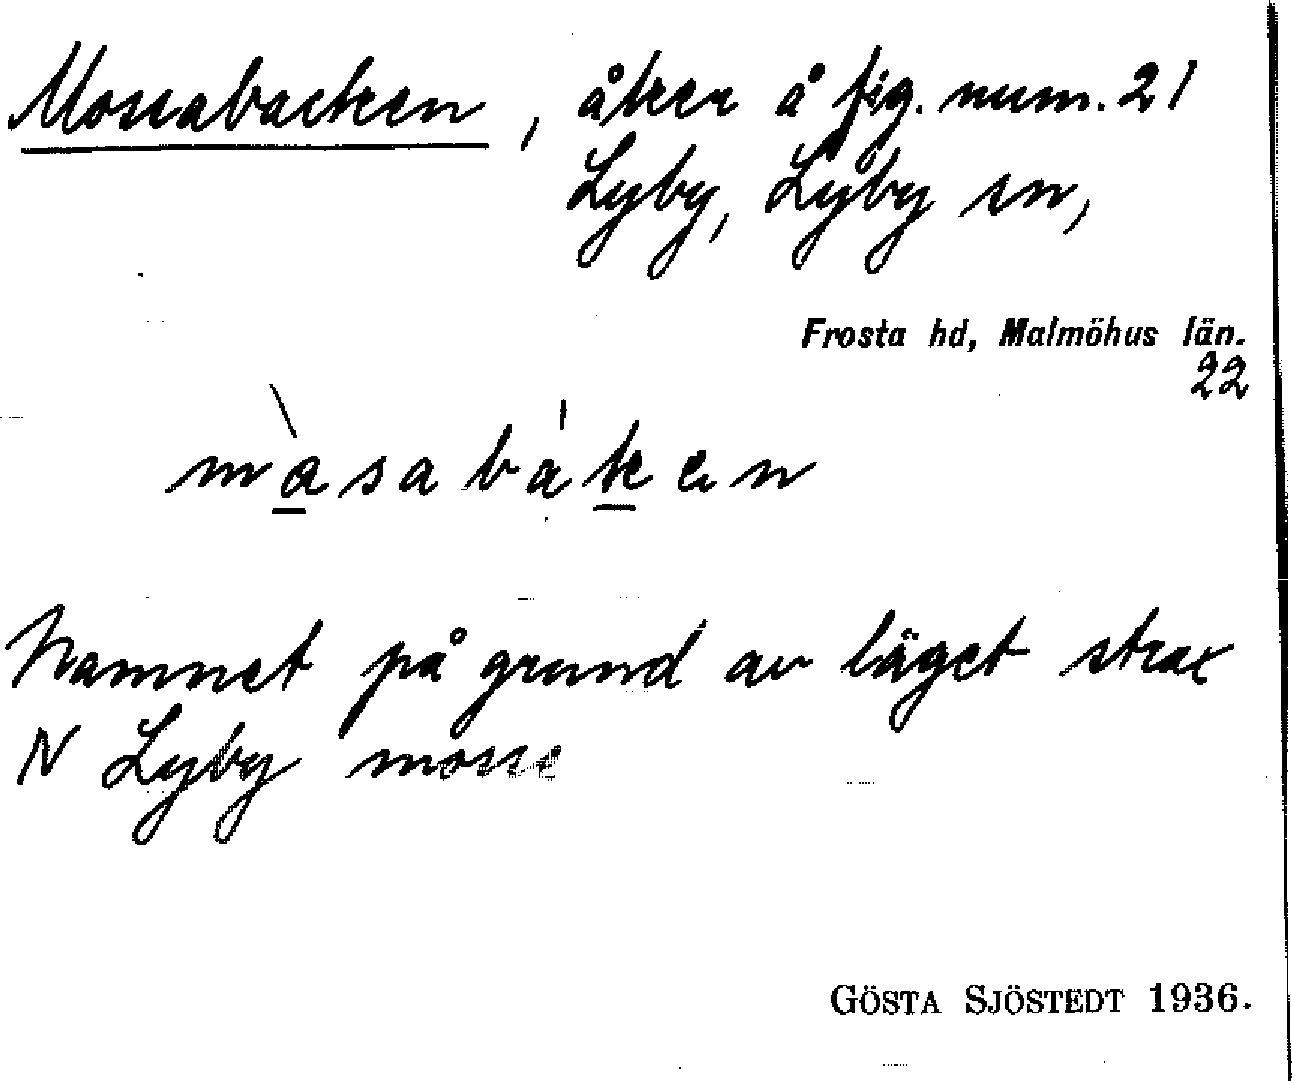 Mossabacken, åker å fig. num. 21
Lyby, Lyby sn,
Frosta hd, Malmöhus län.
22
màsabáken
Namnet på grund av läget strax
N Lyby mosse
GÖSTA SJÖSTEDT 1936.